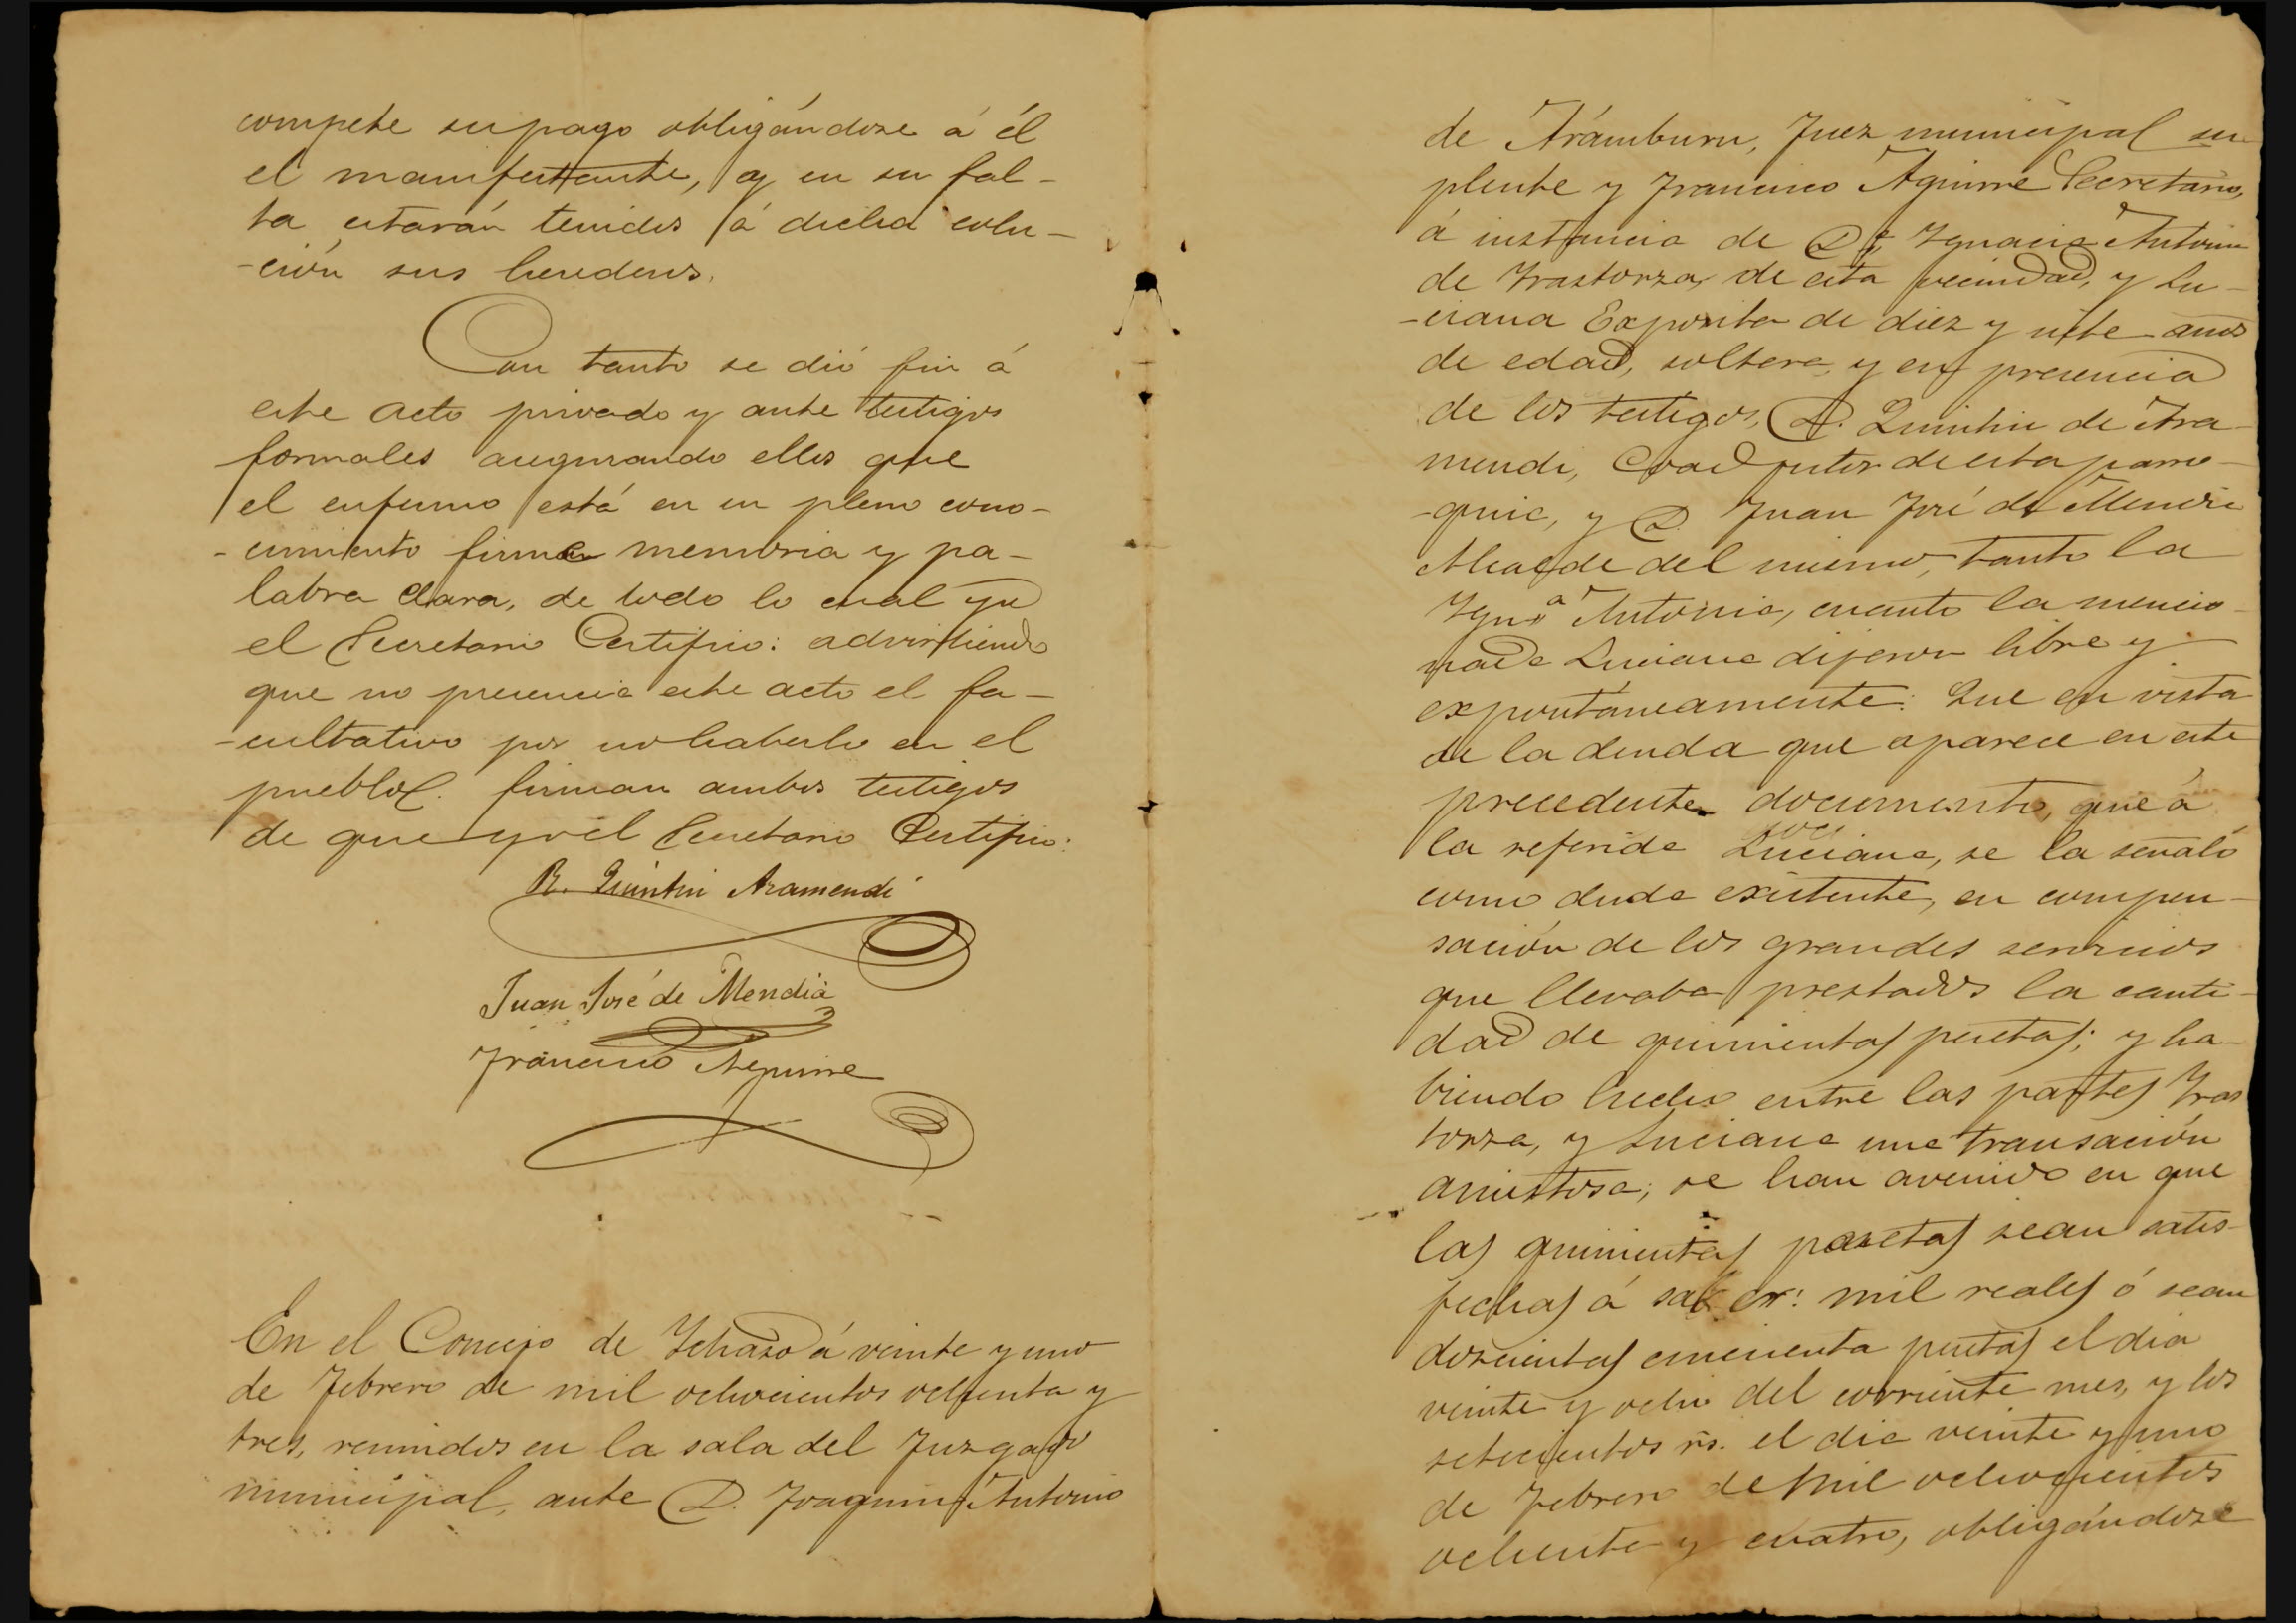 compete su pago obligándose á él
el manifestante, y en su fal-
ta estarán tenidos á dicha solu-
-ción sus herederos.
Con tanto se dió fin á
este acto privado y ante testigos
formales asegurando ellos que
el enfermo está en su pleno cono-
-cimiento firme memoria y pa-
labra clara, de todo lo cual yo
el Secretario Certifico: advirtiendo
que no presencia este acto el fa-
-cultativo por no haberlo en el
pueblo. firman ambos testigos
de que yo el Secretario Certifico:
R. Quintin Aramendi
Juan José de Mendia
Francisco Aguirre
En el Concejo de Ichaso á veinte y uno
de Febrero de mil ochocientos ochenta y
tres, reunidos en la sala del Juzgado
municipal, ante D. Joaquin Antonio
de Arámburu, Juez municipal su
plente y Francisco Aguirre Secretario,
á instancia de Dª Ygnacia Antonia
de Yrastorza, de esta vecindad, y Lu-
-ciana Exposita de diez y siete años
de edad, soltera, y en presencia
de los testigos, D. Quintin de Ara-
mendi, Coadjutor de esta parro-
-quia, y D. Juan José de Mendia
Alcalde del mismo, tanto la
Ygnª Antonia, cuanto la mencio-
nada Luciana dijeron libre y
expontáneamente: Que en vista
de la deuda que aparece en este
precedente documento, que á
la referida Luciana, se la señaló
como deuda existente, en compen-
sación de los grandes servicios
que llevaba prestados la canti-
dad de quinientas pesetas; y ha-
biendo hecho entre las partes Yras
torza, y Luciana una transación
amistosa; se han avenido en que
las quinientas pesetas sean satis-
fechas á saber: mil reales ó sean
doscientas cincuenta pesetas el dia
veinte y ocho del corriente mes, y los
setecientos rs. el dia veinte y uno
de Febrero de mil ochocientos
ochenta y cuatro, obligándose